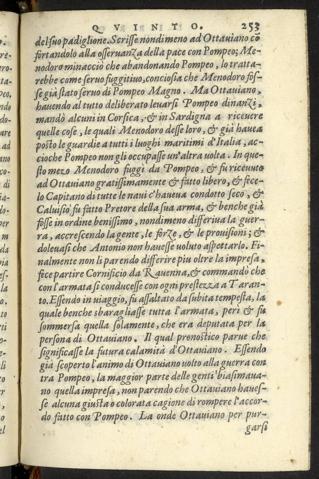 QVINTO. 253
del suo padiglione. Scrisse nondimeno ad Ottauiano cō
fortandolo alla osseruanza della pace con Pompeo; Me-
nodoro minacciò che abandonando Pompeo, lo tratta-
rebbe come seruo fuggitiuo, conciosia che Menodoro fos-
se già stato seruo di Pompeo Magno. Ma Ottauiano,
hauendo al tutto deliberato leuarsi Pompeo dinanzi,
mandò alcuni in Corsica, & in Sardigna a riceuere
quelle cose, le quali Menodoro desse loro, & già hauea
posto le guardie a tutti i luoghi maritimi d'Italia, ac-
cioche Pompeo non gli occupasse un'altra uolta. In que-
sto mezo Menodoro fuggì da Pompeo, & fu riceuuto
ad Ottauiano gratissimamente & fatto libero, & fece-
lo Capitano di tutte le naui c'haueua condotto seco, &
Caluisio fu fatto Pretore della sua arma, & benche già
fosse in ordine benissimo, nondimeno differiua la guer-
ra, accrescendo la gente, le forze, & le prouisioni; &
doleuasi che Antonio non hauesse uoluto aspettarlo. Fi-
nalmente non li parendo differire piu oltre la impresa,
fece partire Cornificio da Rauenna, & commandò che
con l'armata si conducesse con ogni prestezza a Taran-
to. Essendo in uiaggio, fu assaltato da subita tempesta, la
quale benche sbaragliasse tutta l'armata, perì & fu
sommersa quella solamente, che era deputata per la
persona di Ottauiano. Il qual pronostico parue che
significasse la futura calamità d'Ottauiano. Essendo
già scoperto l'animo di Ottauiano uolto alla guerra con
tra Pompeo, la maggior parte delle genti biasimaua-
no quella impresa, non parendo che Ottauiano hauess-
se alcuna giusta o colorata cagione di rompere l'accor-
do fatto con Pompeo. La onde Ottauiano per pur-
garsi